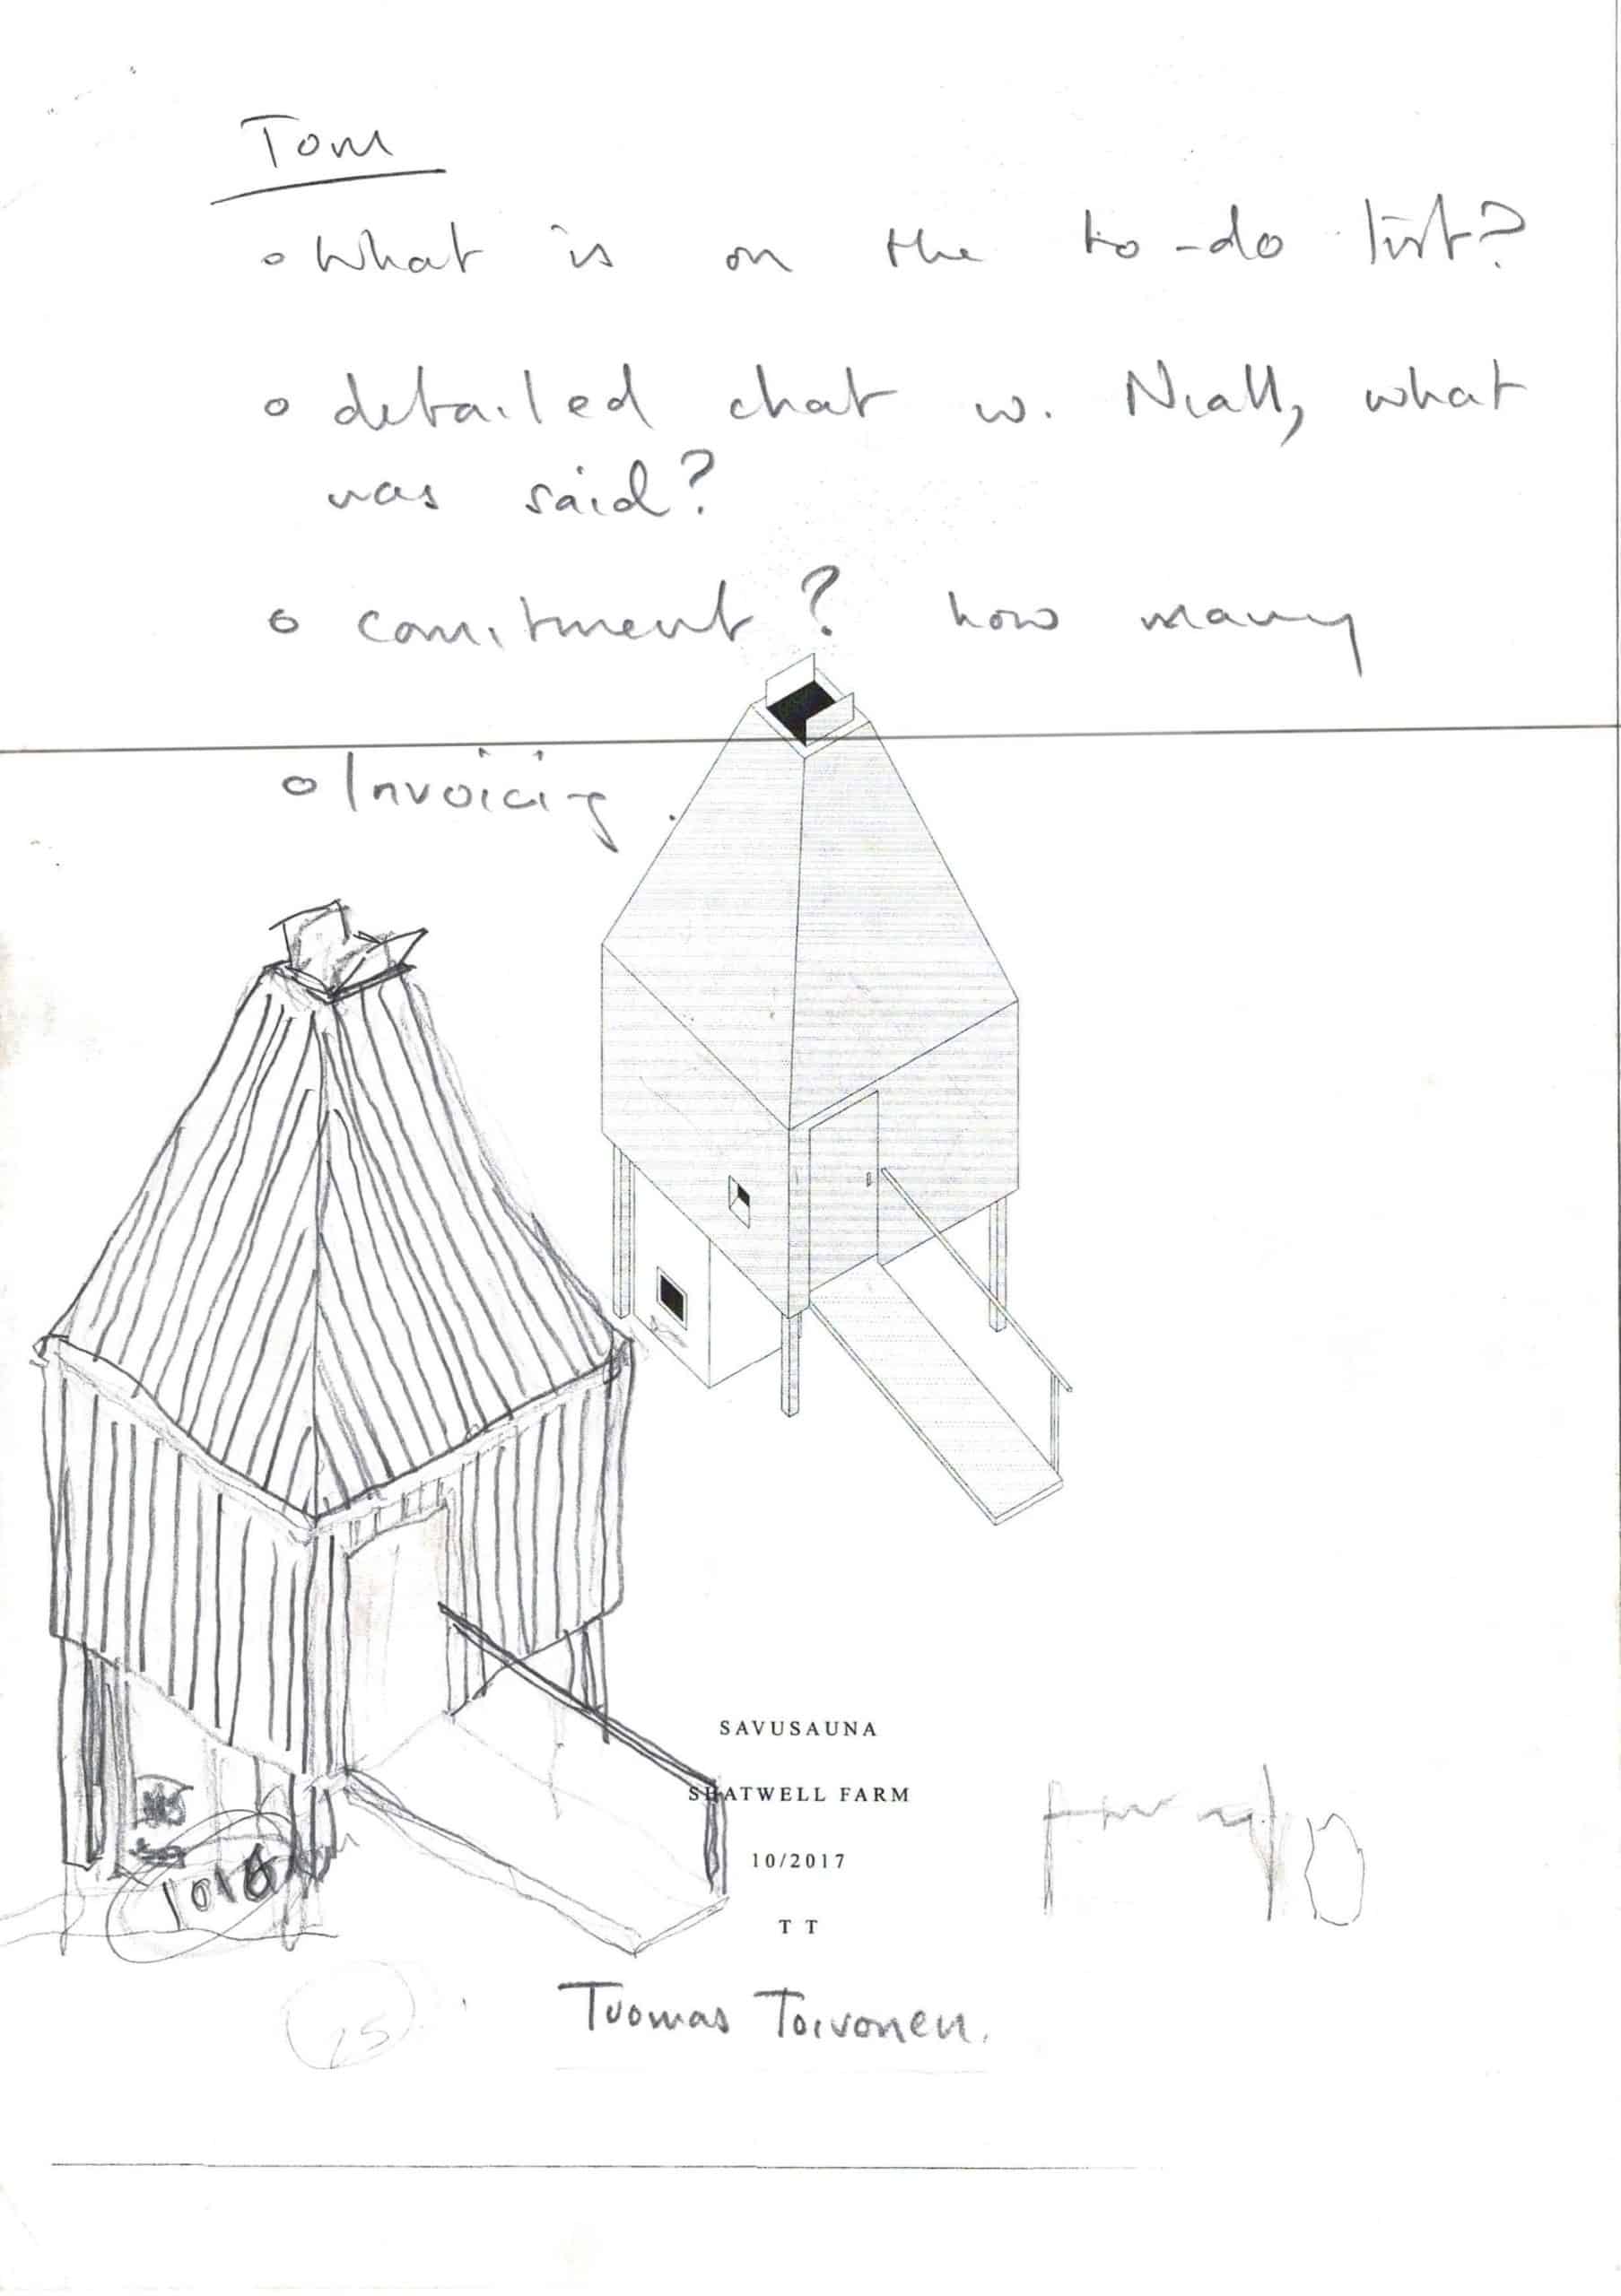 Tom
o What is on the to-do list?
o detailed chat w. Niall, what
was said?
o comitment? how many
o Invoicing.
SAVUSAUNA
SHATWELL FARM
10/2017
T T
Tuomas Toivonen.
25